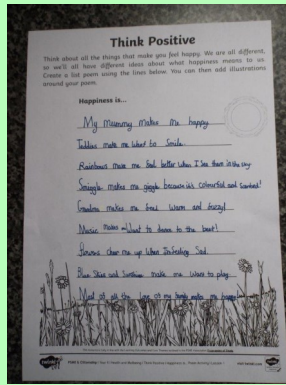 Think Positive
Think about all the things that make you feel happy. We are all different,
so we'll all have different ideas about what happiness means to us.
Create a list poem using the lines below. You can then add illustrations
around your poem.
Happiness is...
My Mummy makes me happy
Teddies make me want to smile.
Rainbows make me feel better when I see them in the sky
Smiggle makes me giggle because it's colourful and scented!
Grandma makes me feel warm and fuzzy!
Music makes me want to dance to the beat!
Flowers cheer me up when I'm feeling Sad.
Blue Skies and Sunshine make me want to play.
Most of all the love of my family makes me happy!
twinkl